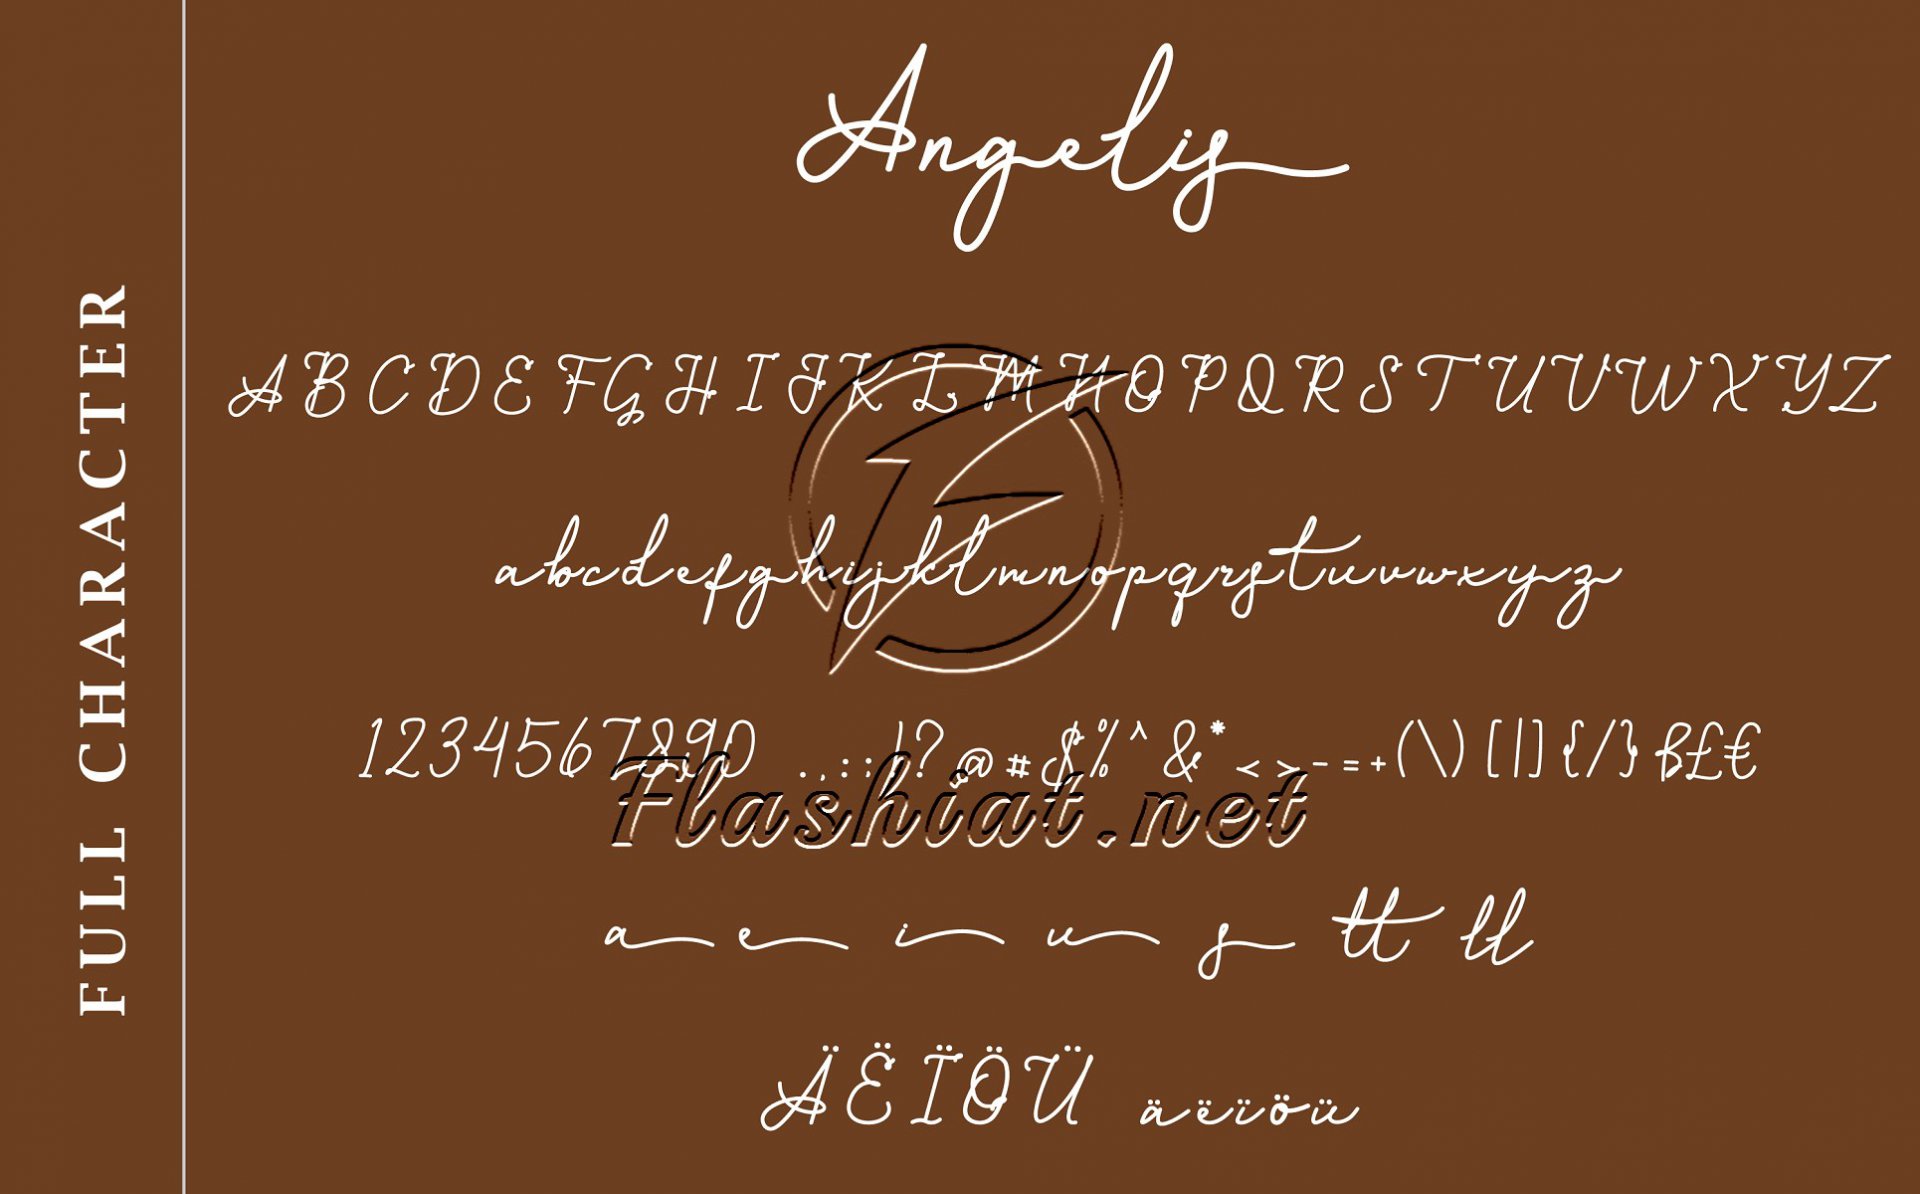 FULL CHARACTER
Angelis
ABCDEFGHIJKLMNOPQRSTUVWXYZ
abcdefghijklmnopqrstuvwxyz
1234567890 .,:;!? @#$%^&*<>-=+(\)[|]{/}ß£€
Flashiat.net
a e i u s tt ll
ÄËÏÖÜ äëïöü